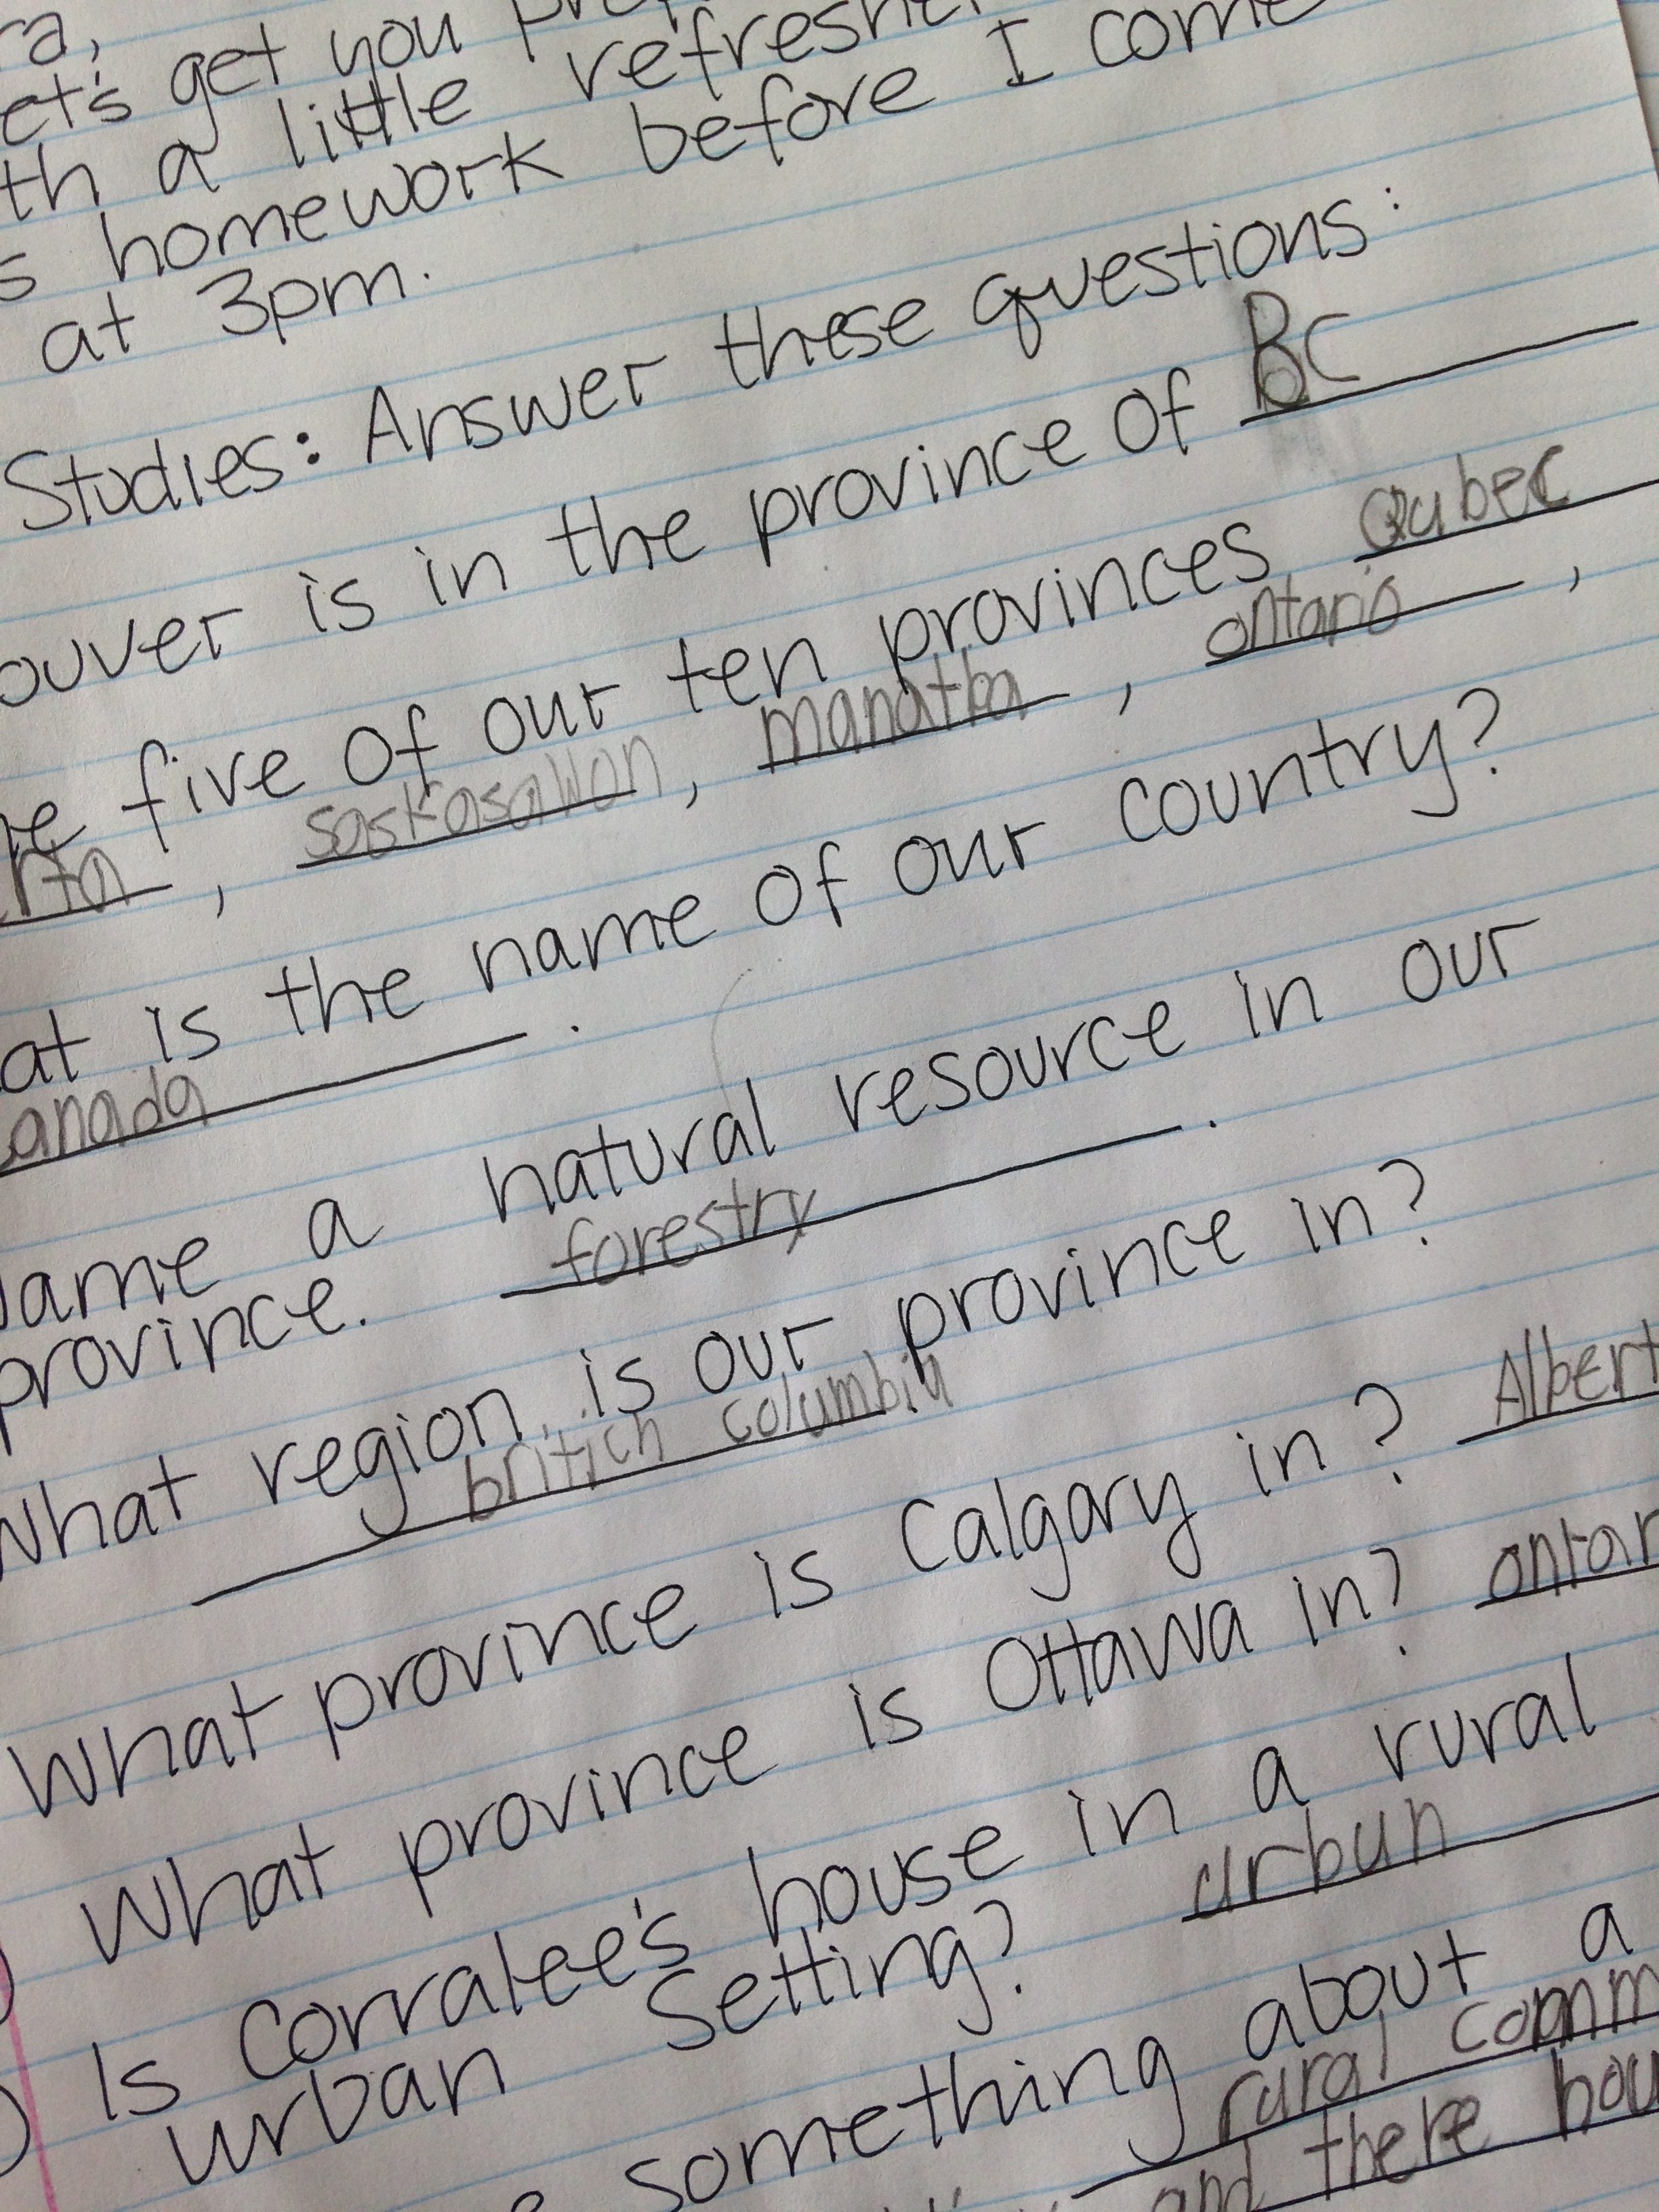 ra,
et's get you
th a little refreshe
s homework before I come
at 3pm.
Studies: Answer these questions:
ouver is in the province of BC
e five of our ten provinces Qubec
rta, saskasawon, manatba, ontario,
at is the name of our country?
anada.
Name a natural resource in our
province. forestry.
What region is our province in?
british columbia.
What province is Calgary in? Albert
What province is Ottawa in? ontar
Is Corralee's house in a rural
urban setting? urbun
something about a
rural comm
and there hou